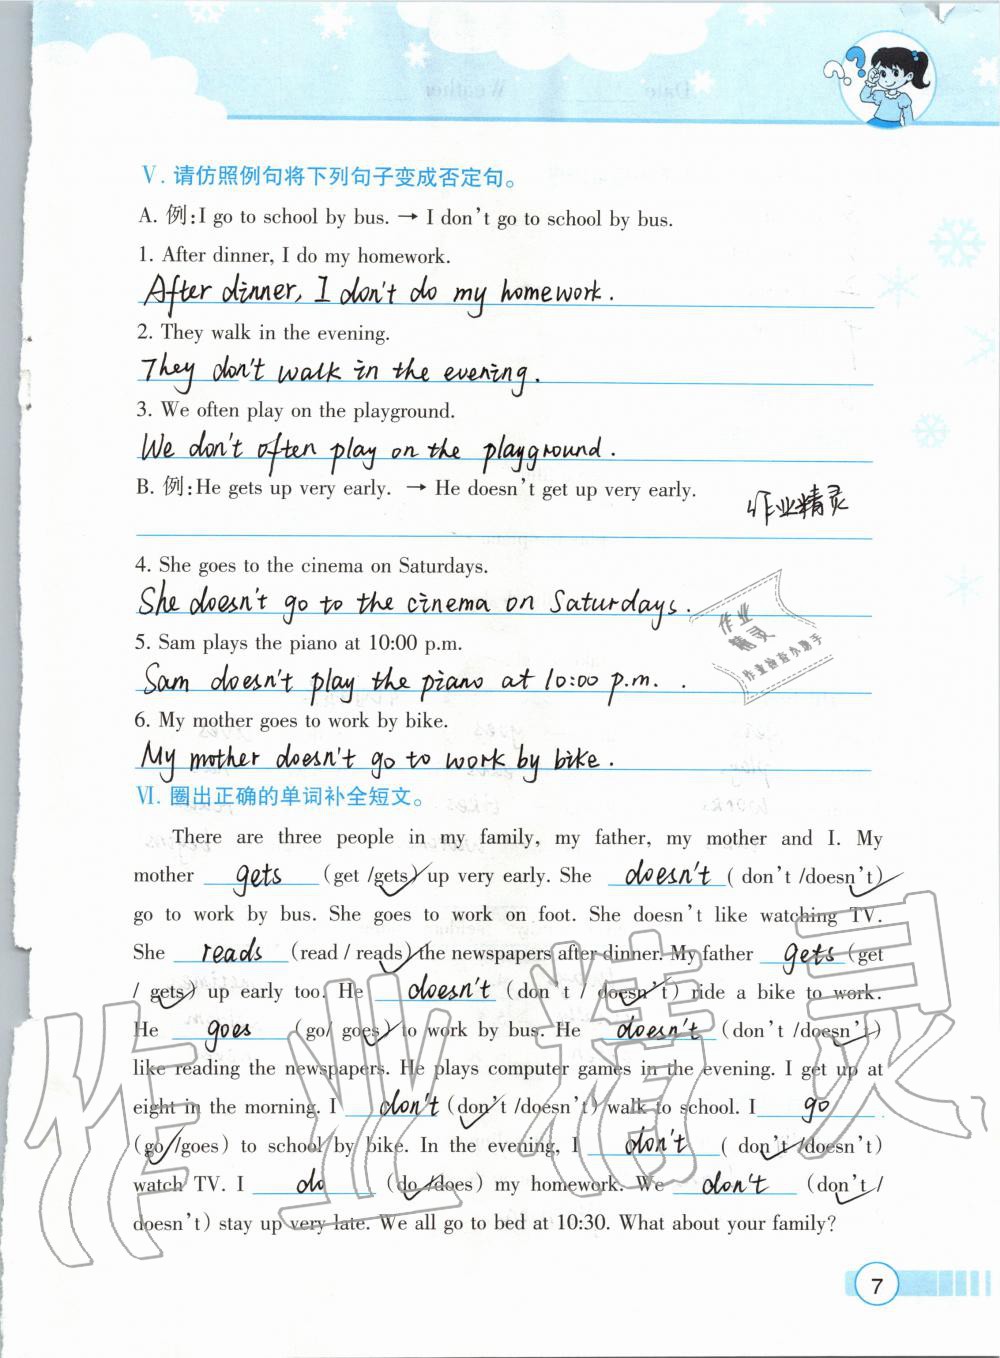 Ⅴ. 请仿照例句将下列句子变成否定句。
A. 例:I go to school by bus. → I don't go to school by bus.
1. After dinner, I do my homework.
After dinner, I don't do my homework.
2. They walk in the evening.
They don't walk in the evening.
3. We often play on the playground.
We don't often play on the playground.
B. 例:He gets up very early. → He doesn't get up very early.
作业精灵
4. She goes to the cinema on Saturdays.
She doesn't go to the cinema on Saturdays.
5. Sam plays the piano at 10:00 p.m.
Sam doesn't play the piano at 10:00 p.m. .
6. My mother goes to work by bike.
My mother doesn't go to work by bike.
Ⅵ. 圈出正确的单词补全短文。
There are three people in my family, my father, my mother and I. My
mother gets (get /gets) up very early. She doesn't ( don't /doesn't)
go to work by bus. She goes to work on foot. She doesn't like watching TV.
She reads (read / reads) the newspapers after dinner. My father gets (get
/ gets) up early too. He doesn't (don't / doesn't) ride a bike to work.
He goes (go/ goes) to work by bus. He doesn't (don't /doesn't)
like reading the newspapers. He plays computer games in the evening. I get up at
eight in the morning. I don't (don't /doesn't) walk to school. I go
(go /goes) to school by bike. In the evening, I don't ( don't /doesn't)
watch TV. I do (do /does) my homework. We don't (don't /
doesn't) stay up very late. We all go to bed at 10:30. What about your family?
7
作业精灵
作业
精灵